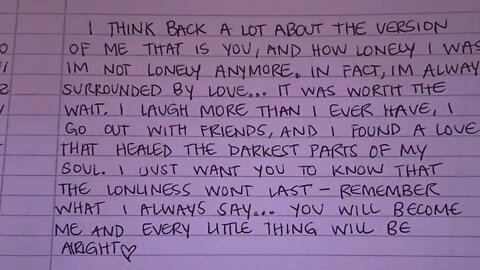 I THINK BACK A LOT ABOUT THE VERSION
OF ME THAT IS YOU, AND HOW LONELY I WAS
IM NOT LONELY ANYMORE. IN FACT, IM ALWAY
SURROUNDED BY LOVE... IT WAS WORTH THE
WAIT. I LAUGH MORE THAN I EVER HAVE, I
GO OUT WITH FRIENDS, AND I FOUND A LOVE
THAT HEALED THE DARKEST PARTS OF MY
SOUL. I JUST WANT YOU TO KNOW THAT
THE LONLINESS WONT LAST - REMEMBER
WHAT I ALWAYS SAY... YOU WILL BECOME
ME AND EVERY LITTLE THING WILL BE
ALRIGHT♡